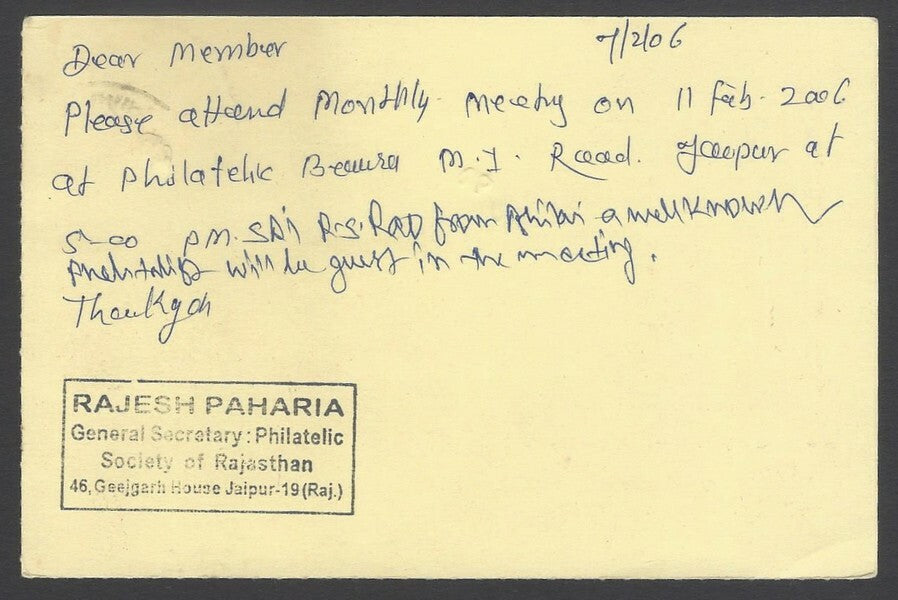 7/2/06
Dear Member
Please attend Monthly meeting on 11 Feb. 2006
at Philatelic Beaura M.I. Raod. Jaipur at
5-00 PM. SRi R.S. RAO from Bhilai a wellknown
will be guest in the meeting.
Thankyou
RAJESH PAHARIA
General Secretary : Philatelic
Society of Rajasthan
46, Geejgarh House Jaipur-19 (Raj.)